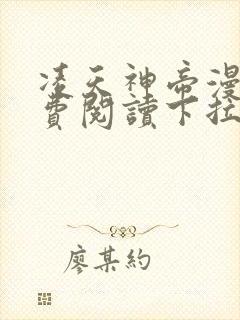 凌天神帝漫
費閱讀下拉
廖某約